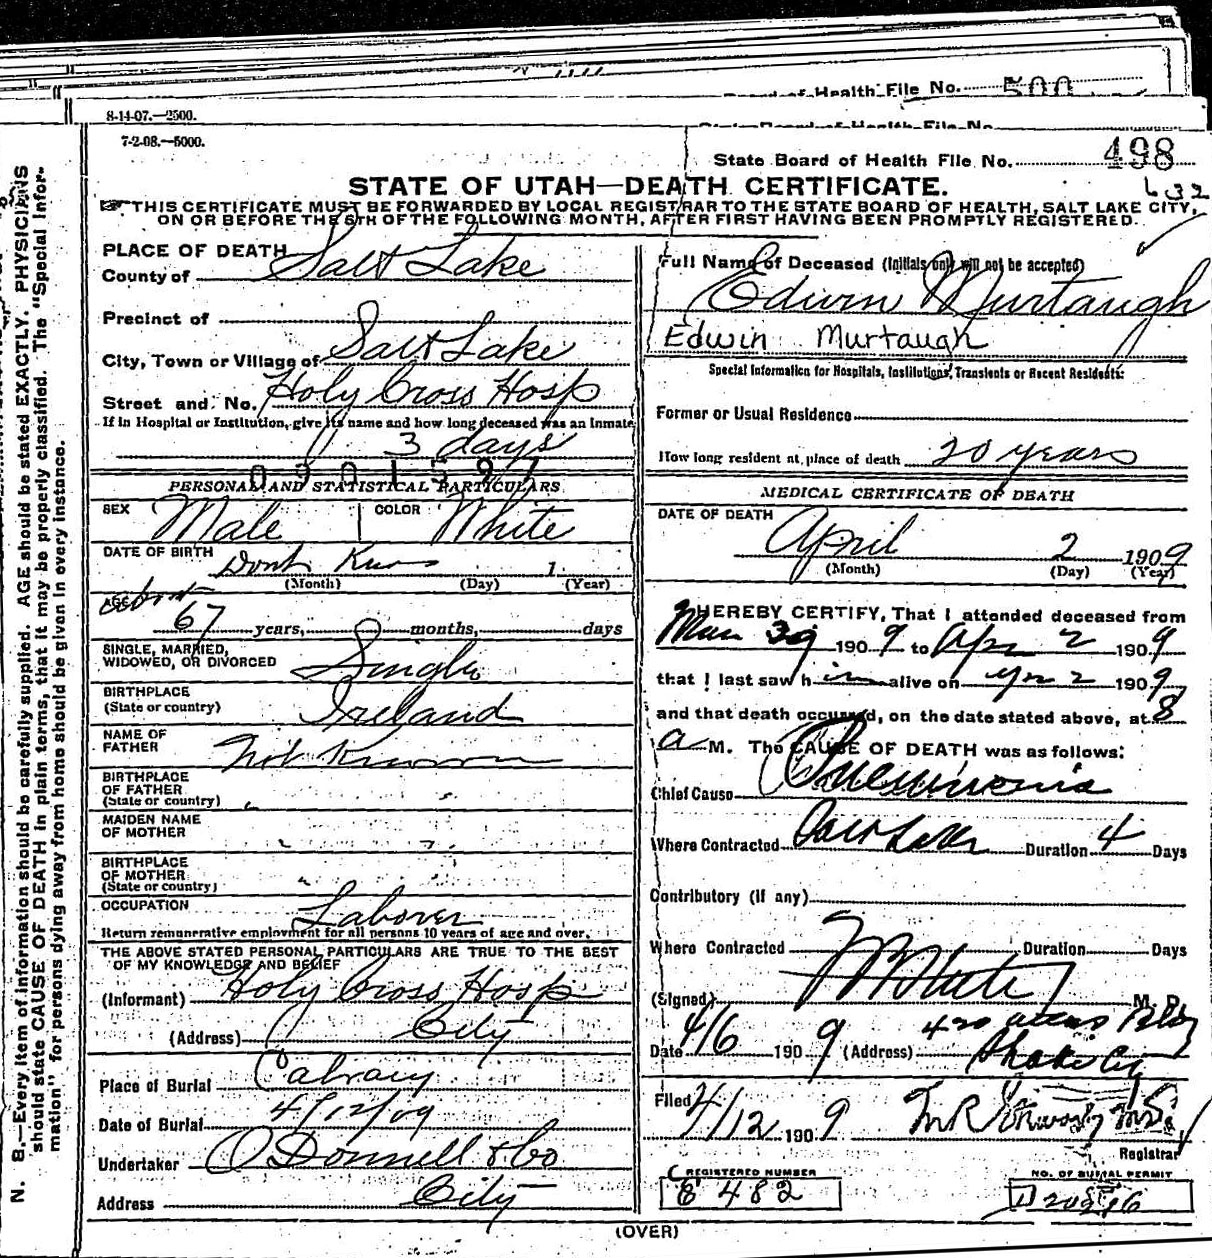 Board of Health File No. 500
State Board of Health File No.
8-14-07.—2500.
7-2-08.—5000.
State Board of Health File No. 498
632
STATE OF UTAH—DEATH CERTIFICATE.
THIS CERTIFICATE MUST BE FORWARDED BY LOCAL REGISTRAR TO THE STATE BOARD OF HEALTH, SALT LAKE CITY,
ON OR BEFORE THE 5TH OF THE FOLLOWING MONTH, AFTER FIRST HAVING BEEN PROMPTLY REGISTERED.
N. B.—Every item of information should be carefully supplied. AGE should be stated EXACTLY. PHYSICIANS
should state CAUSE OF DEATH in plain terms, that it may be properly classified. The "Special Infor-
mation" for persons dying away from home should be given in every instance.
PLACE OF DEATH
County of Salt Lake
Precinct of
City, Town or Village of Salt Lake
Street and No. Holy Cross Hosp
If in Hospital or Institution, give its name and how long deceased was an inmate
3 days
PERSONAL AND STATISTICAL PARTICULARS
SEX Male COLOR White
DATE OF BIRTH Dont Know 1
(Month) (Day) (Year)
AGE about
67 years, months, days
SINGLE, MARRIED,
WIDOWED, OR DIVORCED Single
BIRTHPLACE
(State or country) Ireland
NAME OF
FATHER Not Known
BIRTHPLACE
OF FATHER
(State or country) "
MAIDEN NAME
OF MOTHER "
BIRTHPLACE
OF MOTHER
(State or country) "
OCCUPATION Laborer
Return remunerative employment for all persons 10 years of age and over.
THE ABOVE STATED PERSONAL PARTICULARS ARE TRUE TO THE BEST
OF MY KNOWLEDGE AND BELIEF
(Informant) Holy Cross Hosp
(Address) City
Place of Burial Calvary
Date of Burial 4/12/09
Undertaker O'Donnell & Co
Address City
Full Name of Deceased (Initials only will not be accepted)
Edwin Murtaugh
Edwin Murtaugh
Special Information for Hospitals, Institutions, Transients or Recent Residents:
Former or Usual Residence
How long resident at place of death 20 years
MEDICAL CERTIFICATE OF DEATH
DATE OF DEATH
April 2 1909
(Month) (Day) (Year)
I HEREBY CERTIFY, That I attended deceased from
Mar 30 1909 to Apr 2 1909
that I last saw him alive on Apr 2 1909
and that death occurred, on the date stated above, at 8
a M. The CAUSE OF DEATH was as follows:
Chief Cause Pneumonia
Where Contracted Salt Lake Duration 4 Days
Contributory (if any)
Where Contracted Duration Days
(Signed) M. D.
Date 4/6 1909 (Address) 420 Bldg
Filed 4/12 1909
Registrar
REGISTERED NUMBER
E 482
NO. OF BURIAL PERMIT
(OVER)